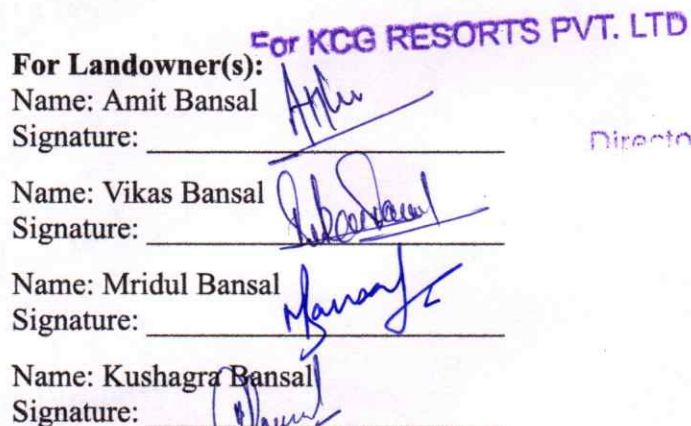 For KCG RESORTS PVT. LTD
For Landowner(s):
Name: Amit Bansal
Signature:
Directo
Name: Vikas Bansal
Signature:
Name: Mridul Bansal
Signature:
Name: Kushagra Bansal
Signature: